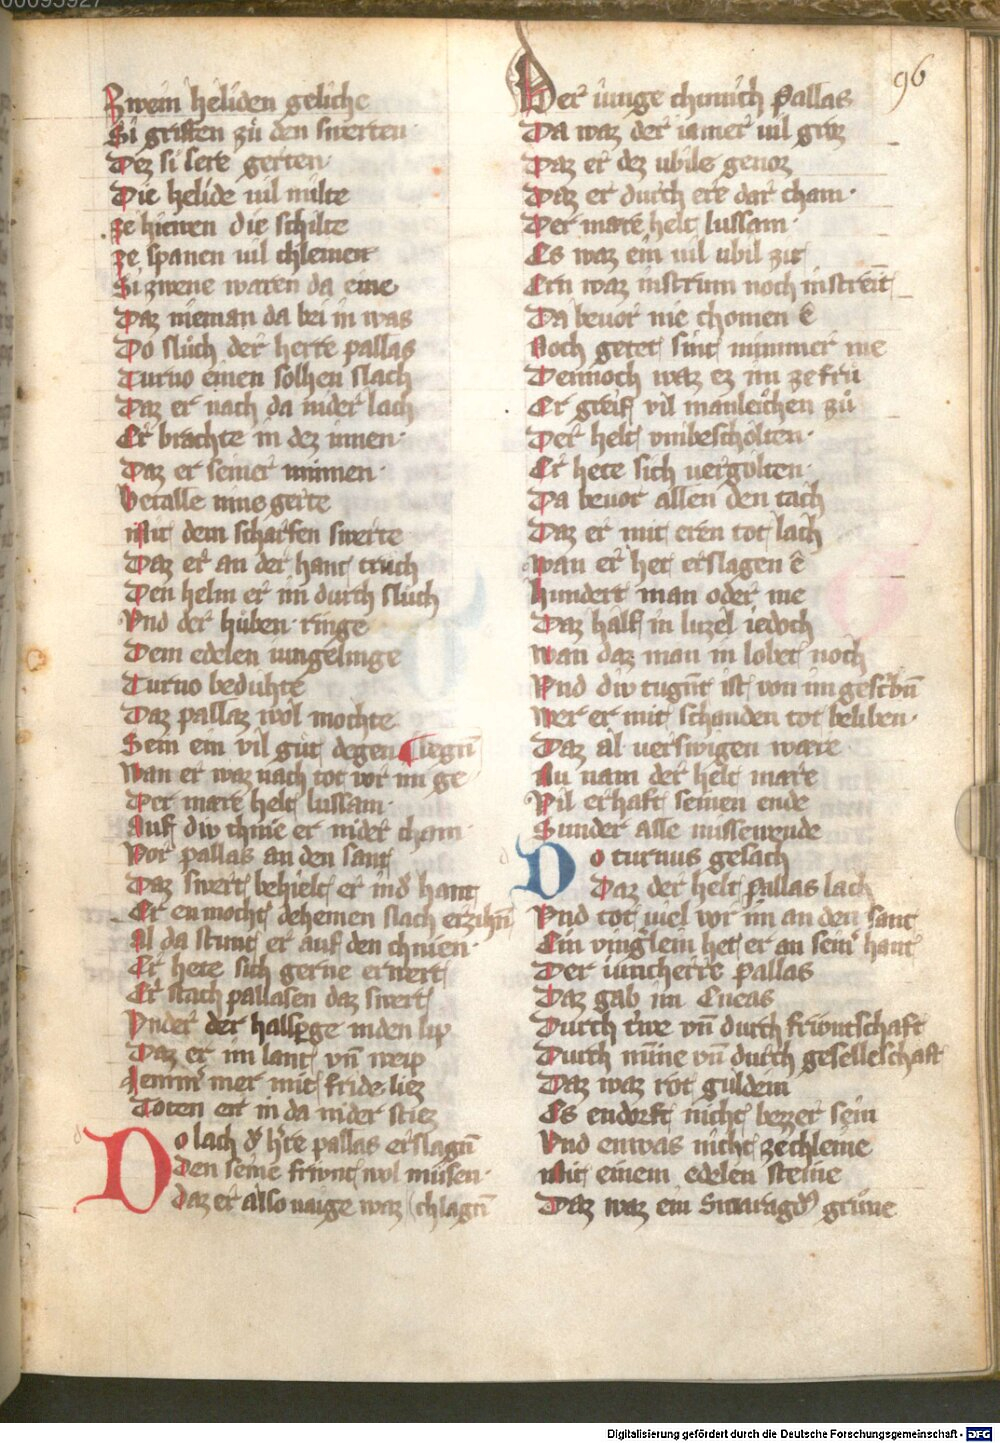 00095927
96
Zwein heliden geliche
Si griffen zů den swerten
Dez si sere gerten
Die helide vil milte
ze hiewen die schilte
ze spanen vil chleinen
Si zwene waren da eine
Daz nieman da bei in was
Do slůch der herre pallas
Turno einen solhen slach
Daz er nach da nider lach
Er brachte in dez innen
Daz er seiner minnen
Betalle nine gerte
Mit dem scharfen swerte
Daz er an der hant trůch
Den helm er im durch slůch
Vnd der hůben ringe
Dem edelen iungelinge
Turno beduhte
Daz pallaz wol mochte
Sein ein vil gůt degen
Wan er waz nach tot vor im ge
Der mare helt lussam
Auf div chnie er nider cham
Vor pallas an den sant
Daz swert behielt er in d̾ hant
Er en mocht deheinen slach erzihn̄
Al da stunt er auf den chnien
Er hete sich gerne erwert
Er stach pallasen daz swert
Vnder der halsp̱ge in den lip
Daz er im lant vn̄ weip
Iemm̾ mer mit fride liez
Toten er in da nider stiez
Do lach d̾ h̾re pallas erslagn̄
Den seine frivnt wol můsen
Daz er also vaige waz chlagn̄
Der iunge chunich Pallas
Da waz der iamer vil groz
Daz er dez ubile genoz
Daz er durch ere dar cham
Der mare helt lussam
Es waz ein vil ubil zit
Ern waz in sturm noch in streit
Da bevor nie chomen ê
Noch getet sint nimmer me
Dennoch waz ez im ze frů
Er greif vil manleichen zů
Der helt vmbescholten
Er hete sich vergolten
Da bevor allen den tach
Daz er mit eren tot lach
Wan er het erslagen ê
Hundert man oder me
Daz half in luzel iedoch
Wan daz man in lobet noch
Vnd div tugnt ist von im gescribn̄
Wer er mit schanden tot beliben
Daz al verswigen ware
Nu nam der helt mare
Vil erhaft seinen ende
Sunder alle missewende
Do turnus gesach
Daz der helt Pallas lach
Vnd tot viel vor im an den sant
Ein vingerlein het er an sein̾ hant
Der iuncherre Pallas
Daz gab im Eneas
Durch trwe vn̄ durch frivntschaft
Durch minne vn̄ durch geselleschaft
Daz waz rot guldein
Es endorft nicht bezzer sein
Vnd enwas nicht ze chleine
Mit einem edelen steine
Daz waz ein Smaragd̾ grůne
Digitalisierung gefördert durch die Deutsche Forschungsgemeinschaft - DFG